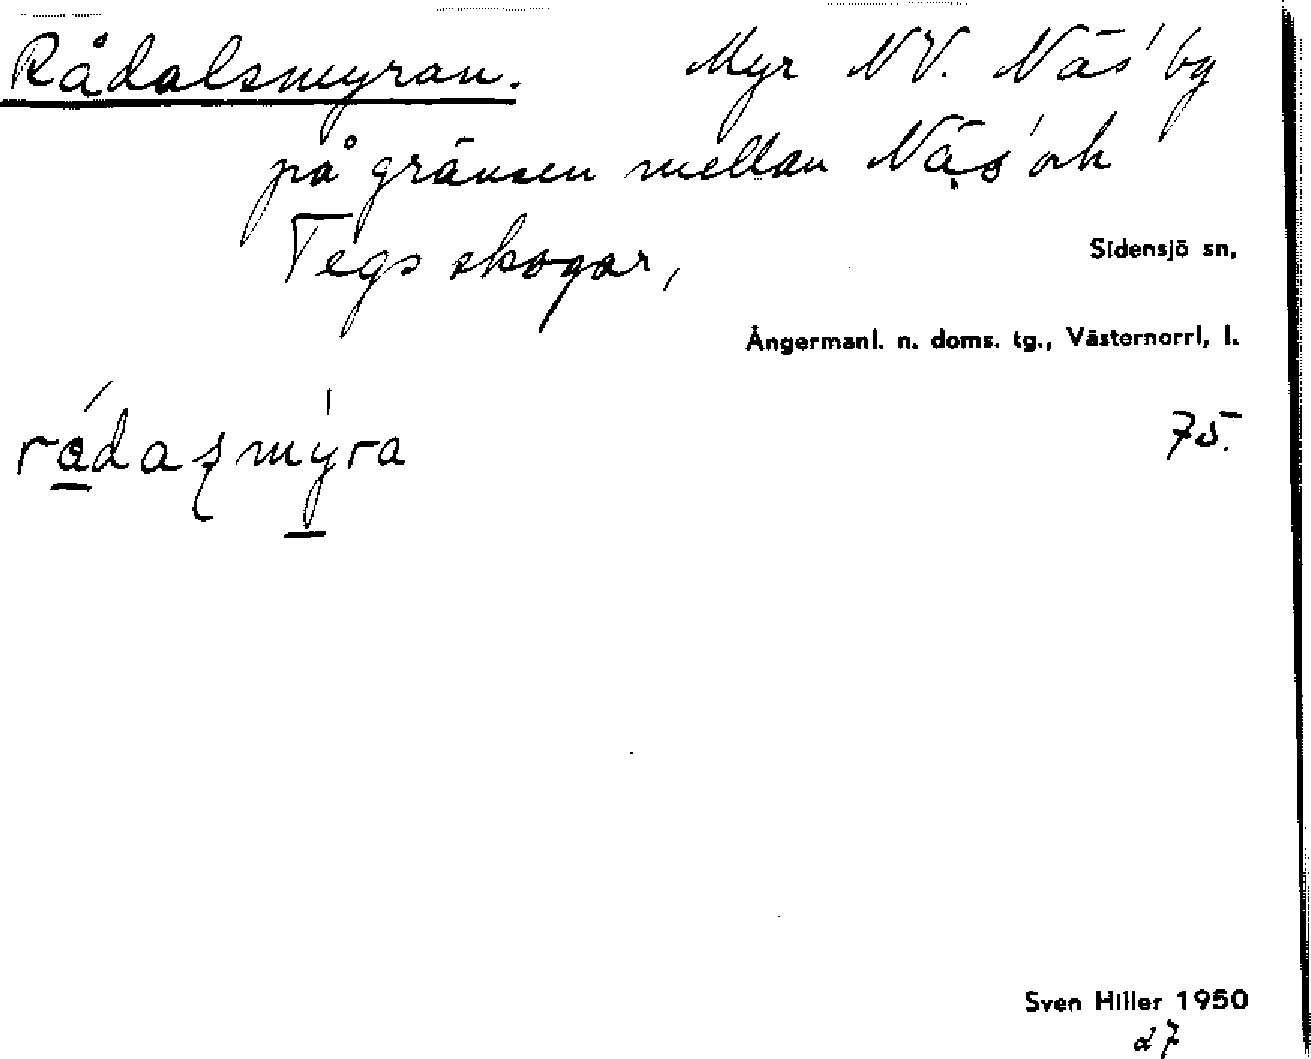 Rådalsmyran. Myr NV. Näs' by
på gränsen mellan Näs' och
Tegs skogar,
Sidensjö sn,
Ångermanl. n. doms. tg., Västernorrl, l.
75.
Sven Hiller 1950